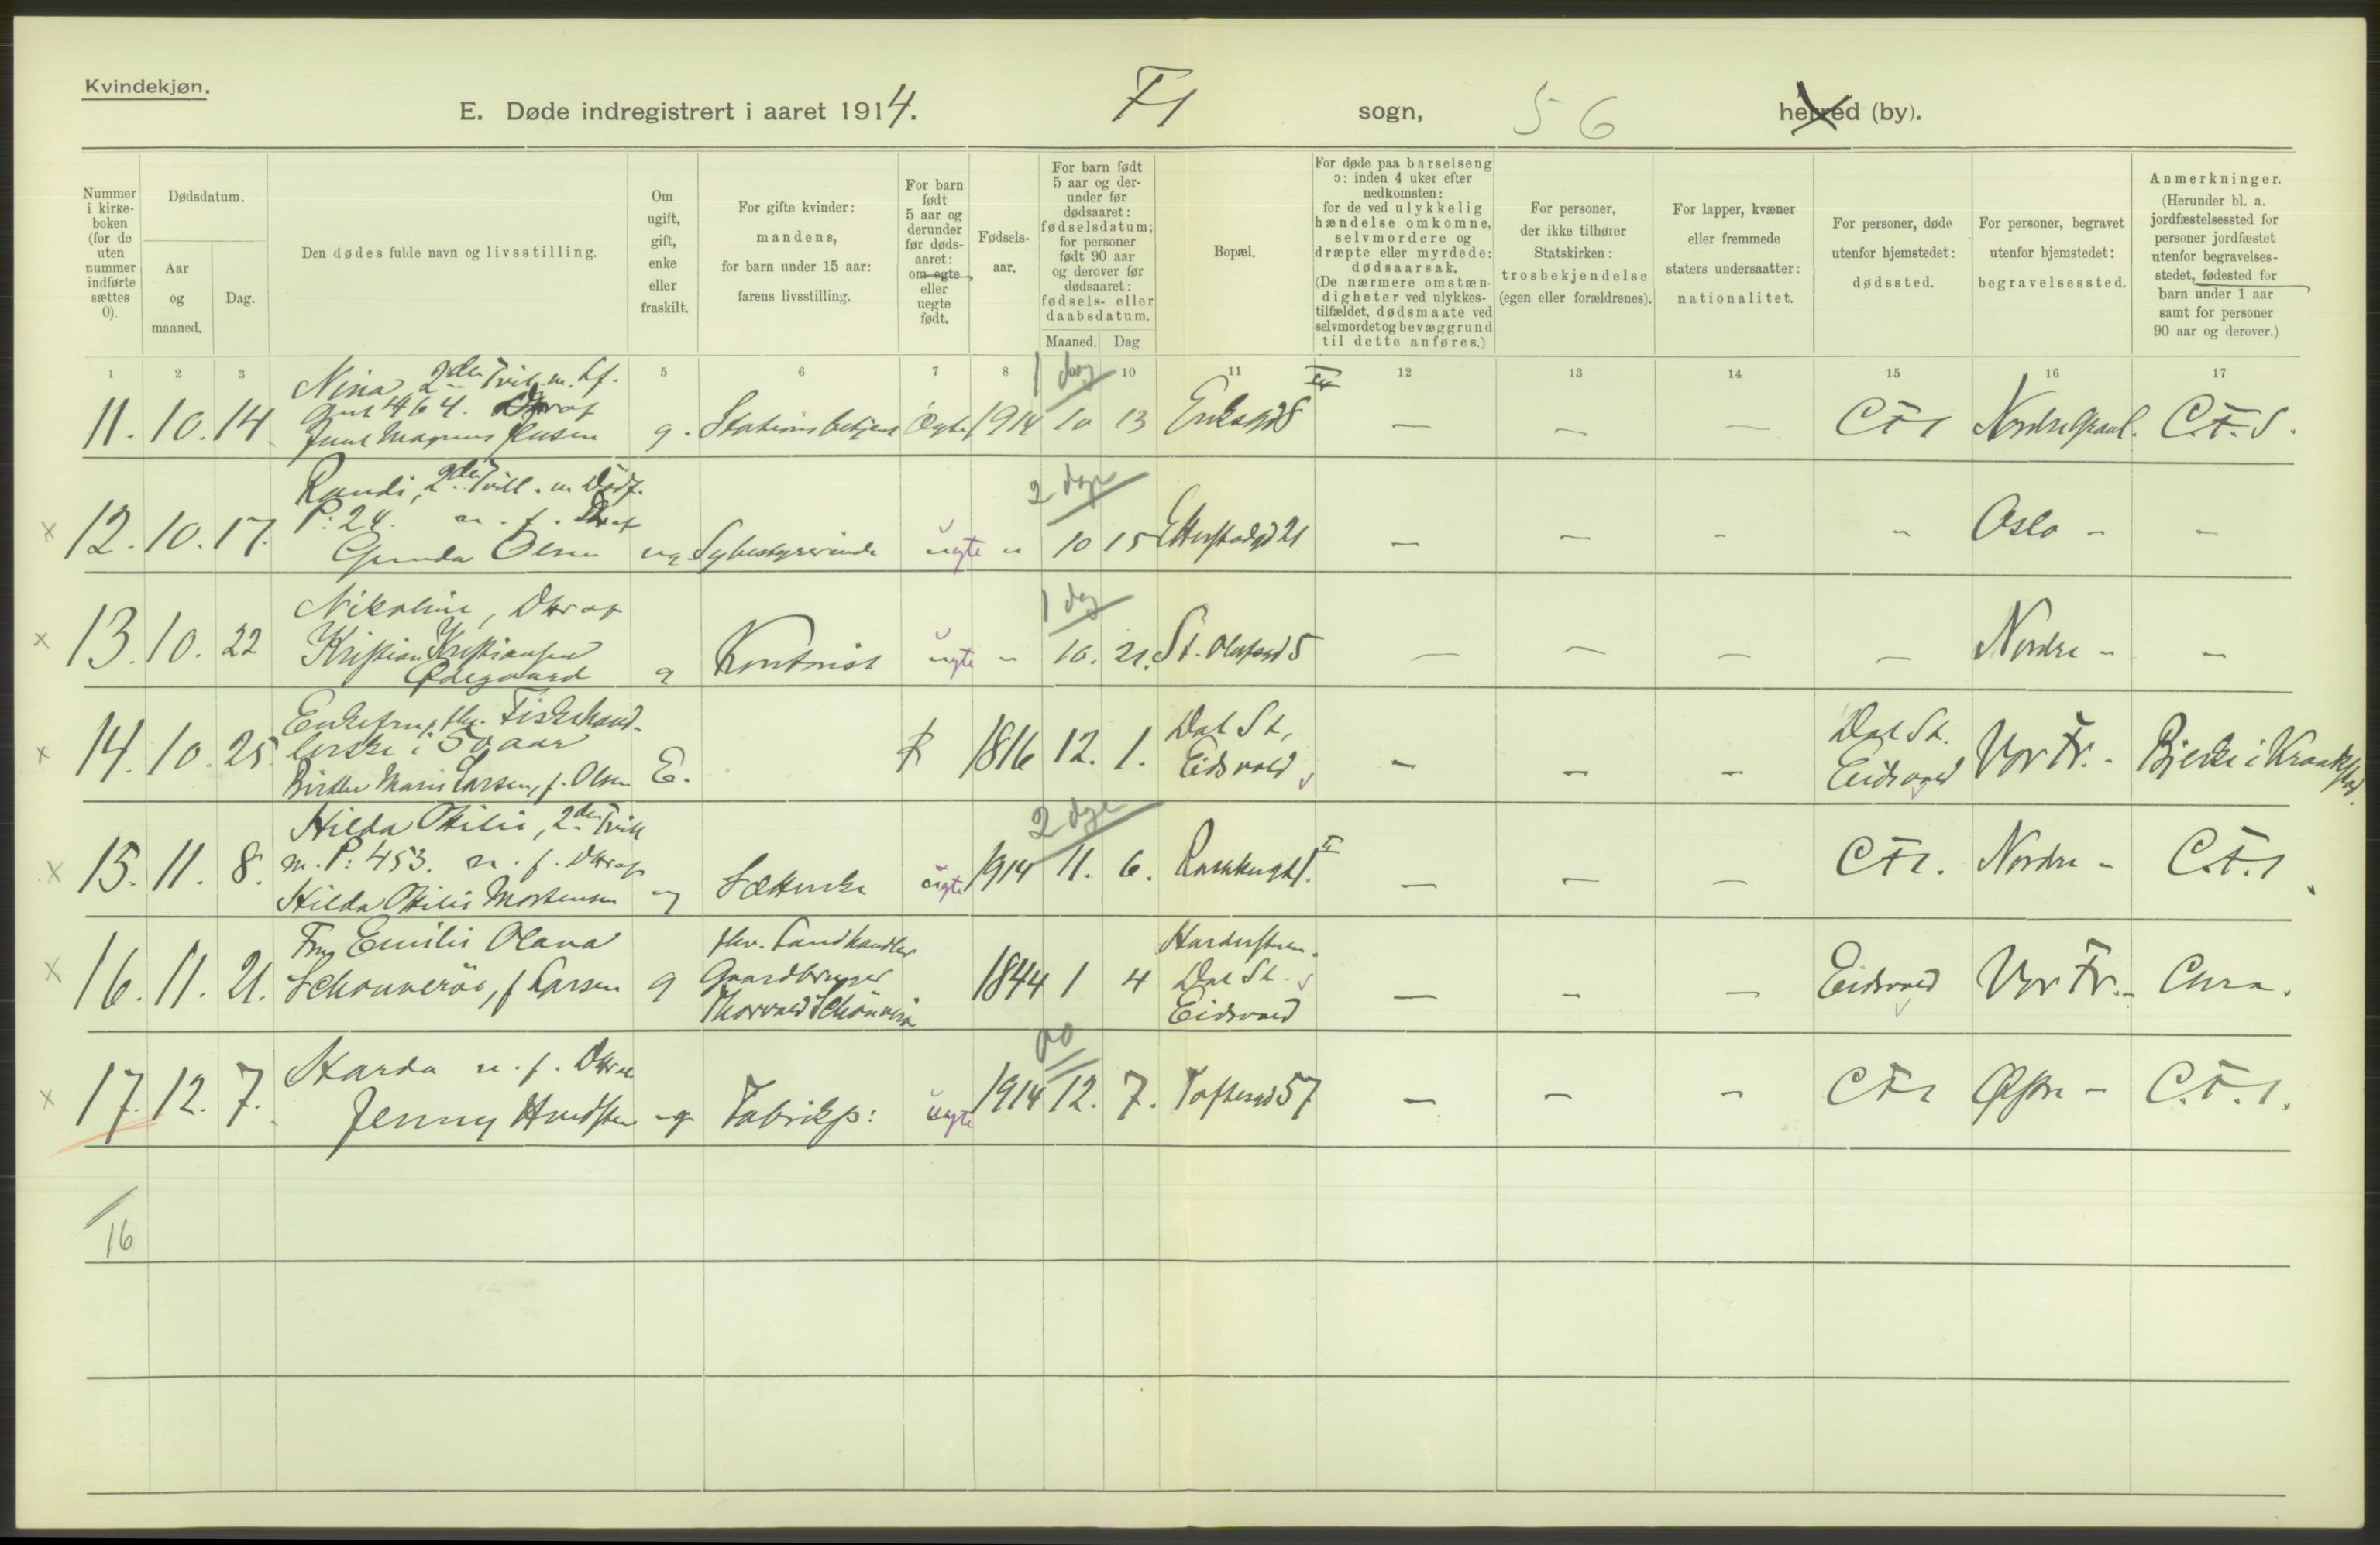 Kvindekjøn.
E. Døde indregistrert i aaret 1914. F1 sogn, 56 herred (by).
Nummer i kirke-boken (for de uten nummer indførte sættes 0).
Dødsdatum.
Aar og maaned.
Dag.
Den dødes fulde navn og livsstilling.
Om ugift, gift, enke eller fraskilt.
For gifte kvinder: mandens, for barn under 15 aar: farens livsstilling.
For barn født 5 aar og derunder før døds-aaret: om egte eller uegte født.
Fødsels-aar.
For barn født 5 aar og der-under før dødsaaret: fødselsdatum; for personer født 90 aar og derover før dødsaaret: fødsels- eller daabsdatum.
Maaned. Dag
Bopæl.
For døde paa barselseng ɔ: inden 4 uker efter nedkomsten: for de ved ulykkelig hændelse omkomne, selvmordere og dræpte eller myrdede: dødsaarsak. (De nærmere omstæn-digheter ved ulykkes-tilfældet, dødsmaate ved selvmordet og bevæggrund til dette anføres.)
For personer, der ikke tilhører Statskirken: trosbekjendelse (egen eller forældrenes).
For lapper, kvæner eller fremmede staters undersaatter: nationalitet.
For personer, døde utenfor hjemstedet: dødssted.
For personer, begravet utenfor hjemstedet: begravelsessted.
Anmerkninger. (Herunder bl. a. jordfæstelsessted for personer jordfæstet utenfor begravelses-stedet, fødested for barn under 1 aar samt for personer 90 aar og derover.)
1 2 3 5 6 7 8 10 11 12 13 14 15 16 17
Nina, 2den Tvil. m. Lf. 1 dag
464. Dtr af
11. 10. 14 Magnus Jensen g. Stationsbetjent Ægte 1914 10 13 Eriksgd 8 — — — CF1 Nordre Gravl. C.F.S.
Randi, 2den Tvill. m Dødf. 2 dage
P: 24. u. f. Dtr af
12. 10. 17. Gunda Olsen ug. Sybestyrerinde uegte " 10 15 Etterstadgd 21 — — - - Oslo - -
Nikoline, Dtr af 1 dag
13. 10. 22 Kristian Kristiansen g Kontorist uegte " 10. 21. St. Olafsgd 5 — — — — Nordre - —
Ødegaard
Enkefru, fhv. Fiskehand- Dal St, Dal St.
lerske i 50 aar
14. 10. 25. Birthe Marie Larsen, f. Olsen E. 1816 12. 1. Eidsvold — — — Eidsvold Vor Fr. - Bjerke i Kraakstad.
Hilda Otilie, 2den Tvill 2 dage
15. 11. 8. m. P: 453. u. f. Dtr af ug Sætterske uegte 1914 11. 6. — — — CF1. Nordre - C.F.1
Hilda Otilie Mortensen
Fru Emilie Olava fhv. Landhandler
16. 11. 21. Schønnerøe, f Larsen g Gaardbruger 1844 1 4 Dal St. — - — Eidsvold Vor Fr. - Chra.
Thorvald Schønnerøe Eidsvold
Harda u. f. Dtr af 00
17. 12. 7. Jenny ug Fabrikp: uegte 1914 12. 7. Toftesgd 57 — — - CF1 Østre - C.F.1.
16